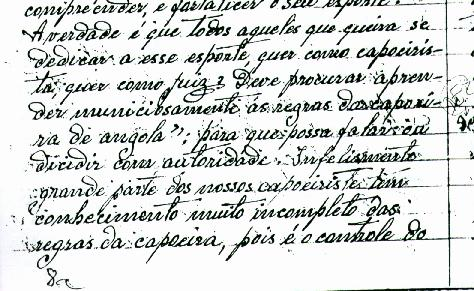 comprender, e fortalicer o seu esporte.
A verdade é que todos aqueles que queira se
dedicar a esse esporte, quer como capoeiris-
ta, quer como juiz? Deve procurar apren-
der municiosamente as regras da capoei-
ra de angola"; para que possa falar ou
dicidir com autoridade. Infelismente
grande parte dos nossos capoeirista tem
conhecimento muito incompleto das
regras da capoeira, pois é o controle do